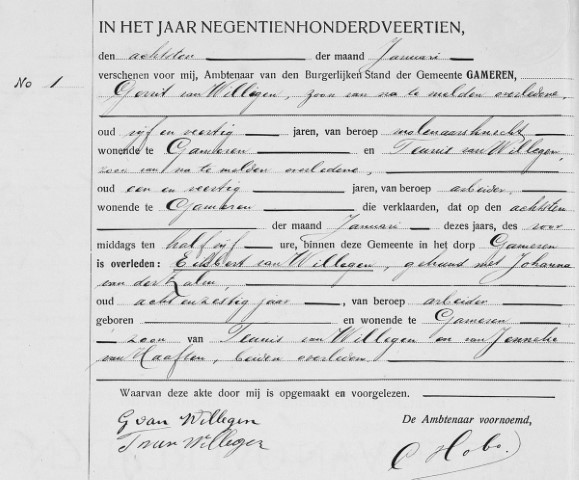 IN HET JAAR NEGENTIENHONDERDVEERTIEN,
den achtsten der maand Januari
No 1
verschenen voor mij, Ambtenaar van den Burgerlijken Stand der Gemeente GAMEREN,
Gerrit van Willegen, zoon van na te melden overledene,
oud vijf en veertig jaren, van beroep molenaarsknecht
wonende te Gameren en Teunis van Willegen,
zoon van na te melden overledene,
oud een en veertig jaren, van beroep arbeider
wonende te Gameren die verklaarden, dat op den achtsten
der maand Januari dezes jaars, des voor
middags ten half vijf ure, binnen deze Gemeente in het dorp Gameren
is overleden: Eibbert van Willegen, gehuwd met Johanna
van der Zalm,
oud acht en zestig jaar, van beroep arbeider
geboren en wonende te Gameren
zoon van Teunis van Willegen en van Jenneke
van Haaften, beiden overleden
Waarvan deze akte door mij is opgemaakt en voorgelezen.
G van Willegen
T van Willegen
De Ambtenaar voornoemd,
C Hobo.